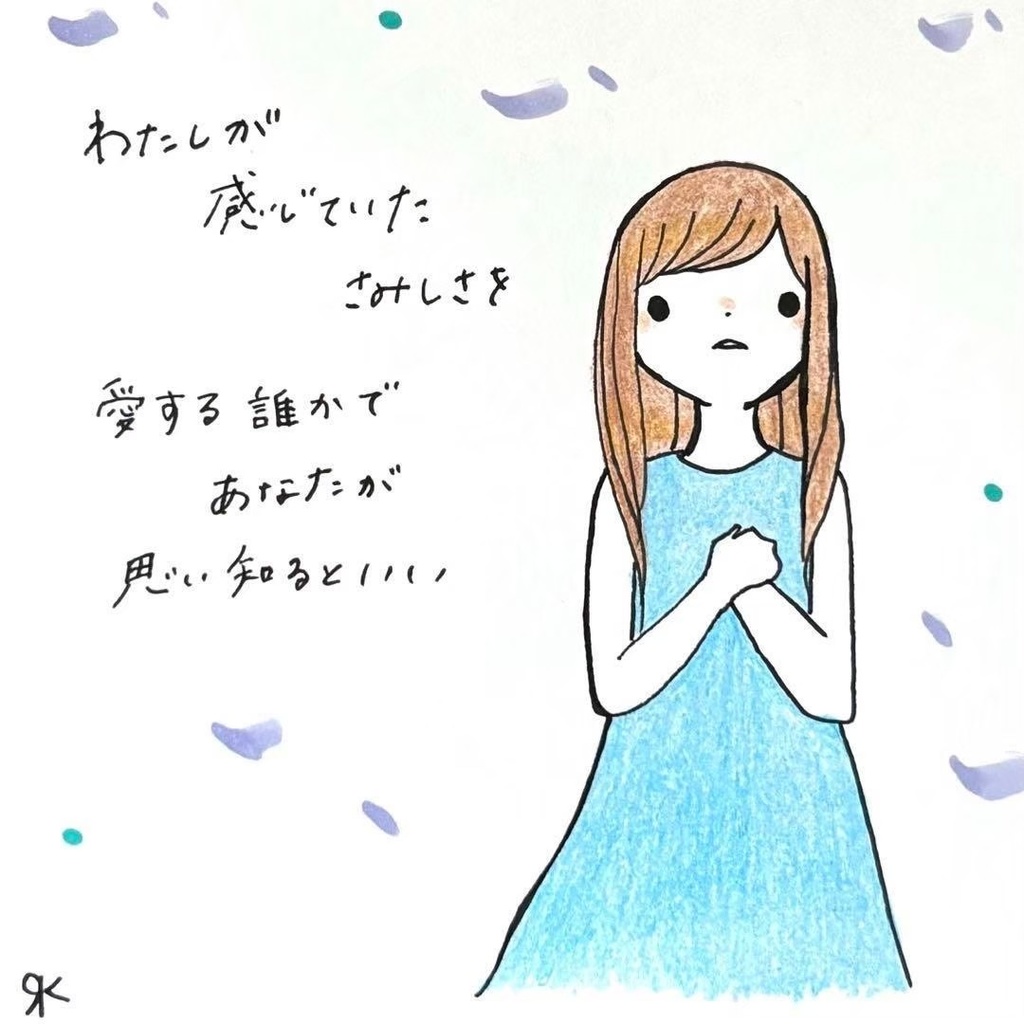 わたしが
感じていた
さみしさを
愛する誰かで
あなたが
思い知るといい